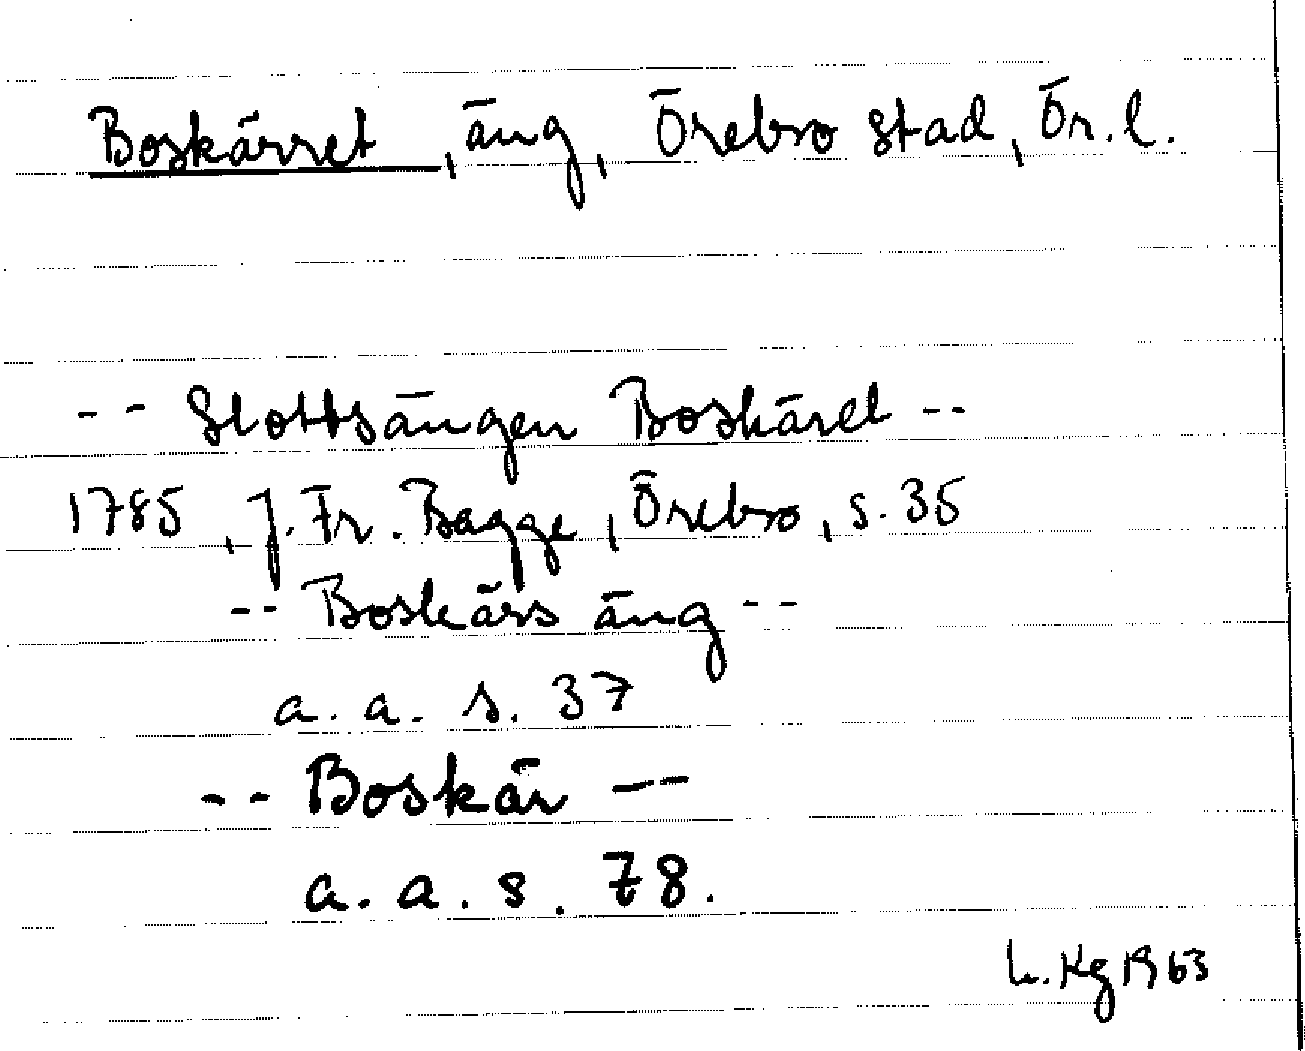 Boskärret, äng, Örebro stad, Ör. l.
-- Slottsängen Boskäret --
1785, J. Fr. Bagge, Örebro, s. 35
-- Boskärs äng --
a. a. s. 37
-- Boskär --
a. a. s. 78.
L. Kg 1963